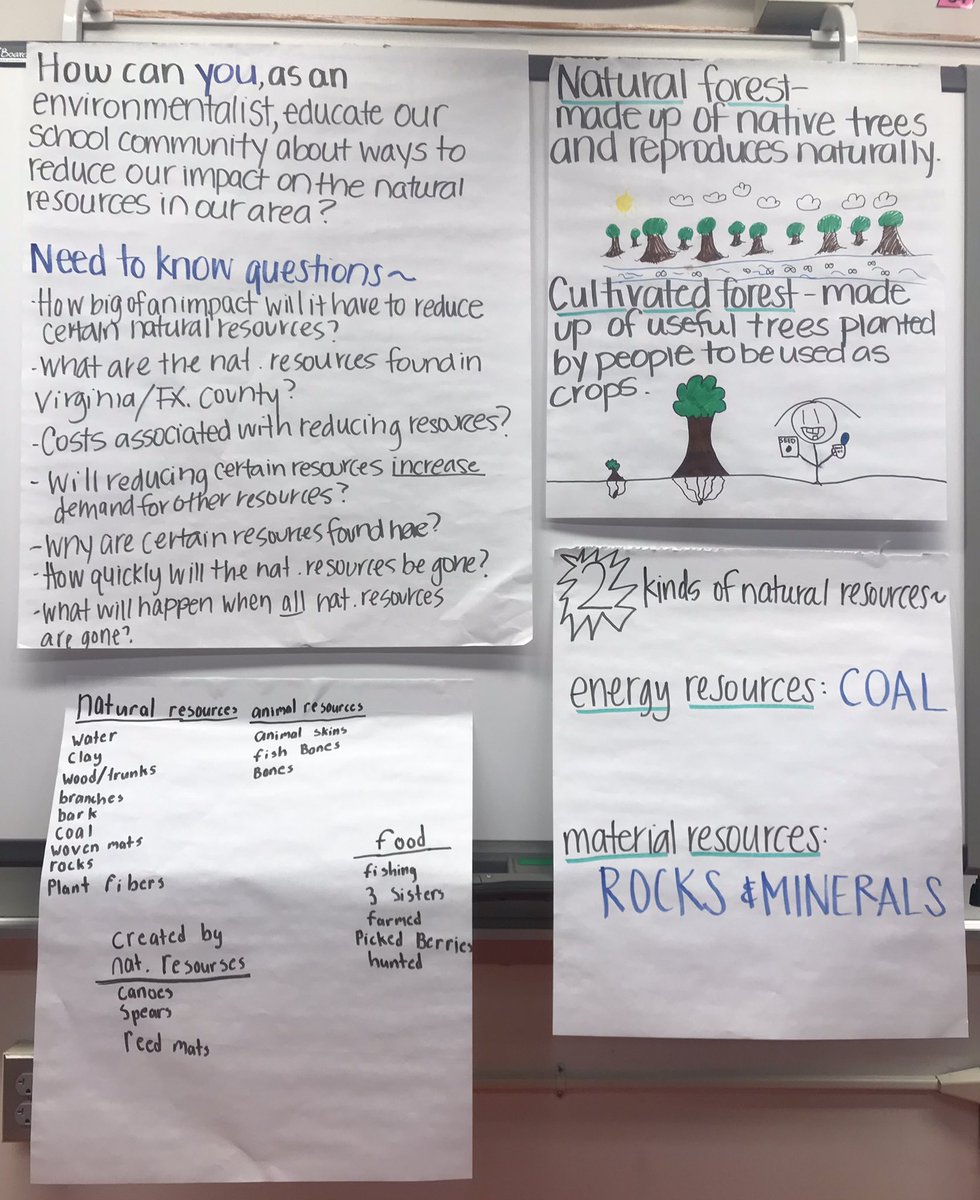 Board
How can you, as an
environmentalist, educate our
school community about ways to
reduce our impact on the natural
resources in our area?
Need to know questions~
·How big of an impact will it have to reduce
certain natural resources?
-what are the nat. resources found in
Virginia/FX. County?
-Costs associated with reducing resources?
- Will reducing certain resources increase
demand for other resources?
-Why are certain resources found here?
-How quickly will the nat. resources be gone?
-what will happen when all nat. resources
are gone?
Natural forest-
made up of native trees
and reproduces naturally.
Cultivated forest - made
up of useful trees planted
by people to be used as
crops.
SEED
2 kinds of natural resources~
energy resources: COAL
material resources:
ROCKS & MINERALS
natural resources
water
clay
wood/trunks
branches
bark
coal
woven mats
rocks
Plant fibers
animal resources
animal skins
fish Bones
Bones
food
fishing
3 Sisters
farmed
Picked Berries
hunted
created by
nat. resourses
canoes
spears
reed mats